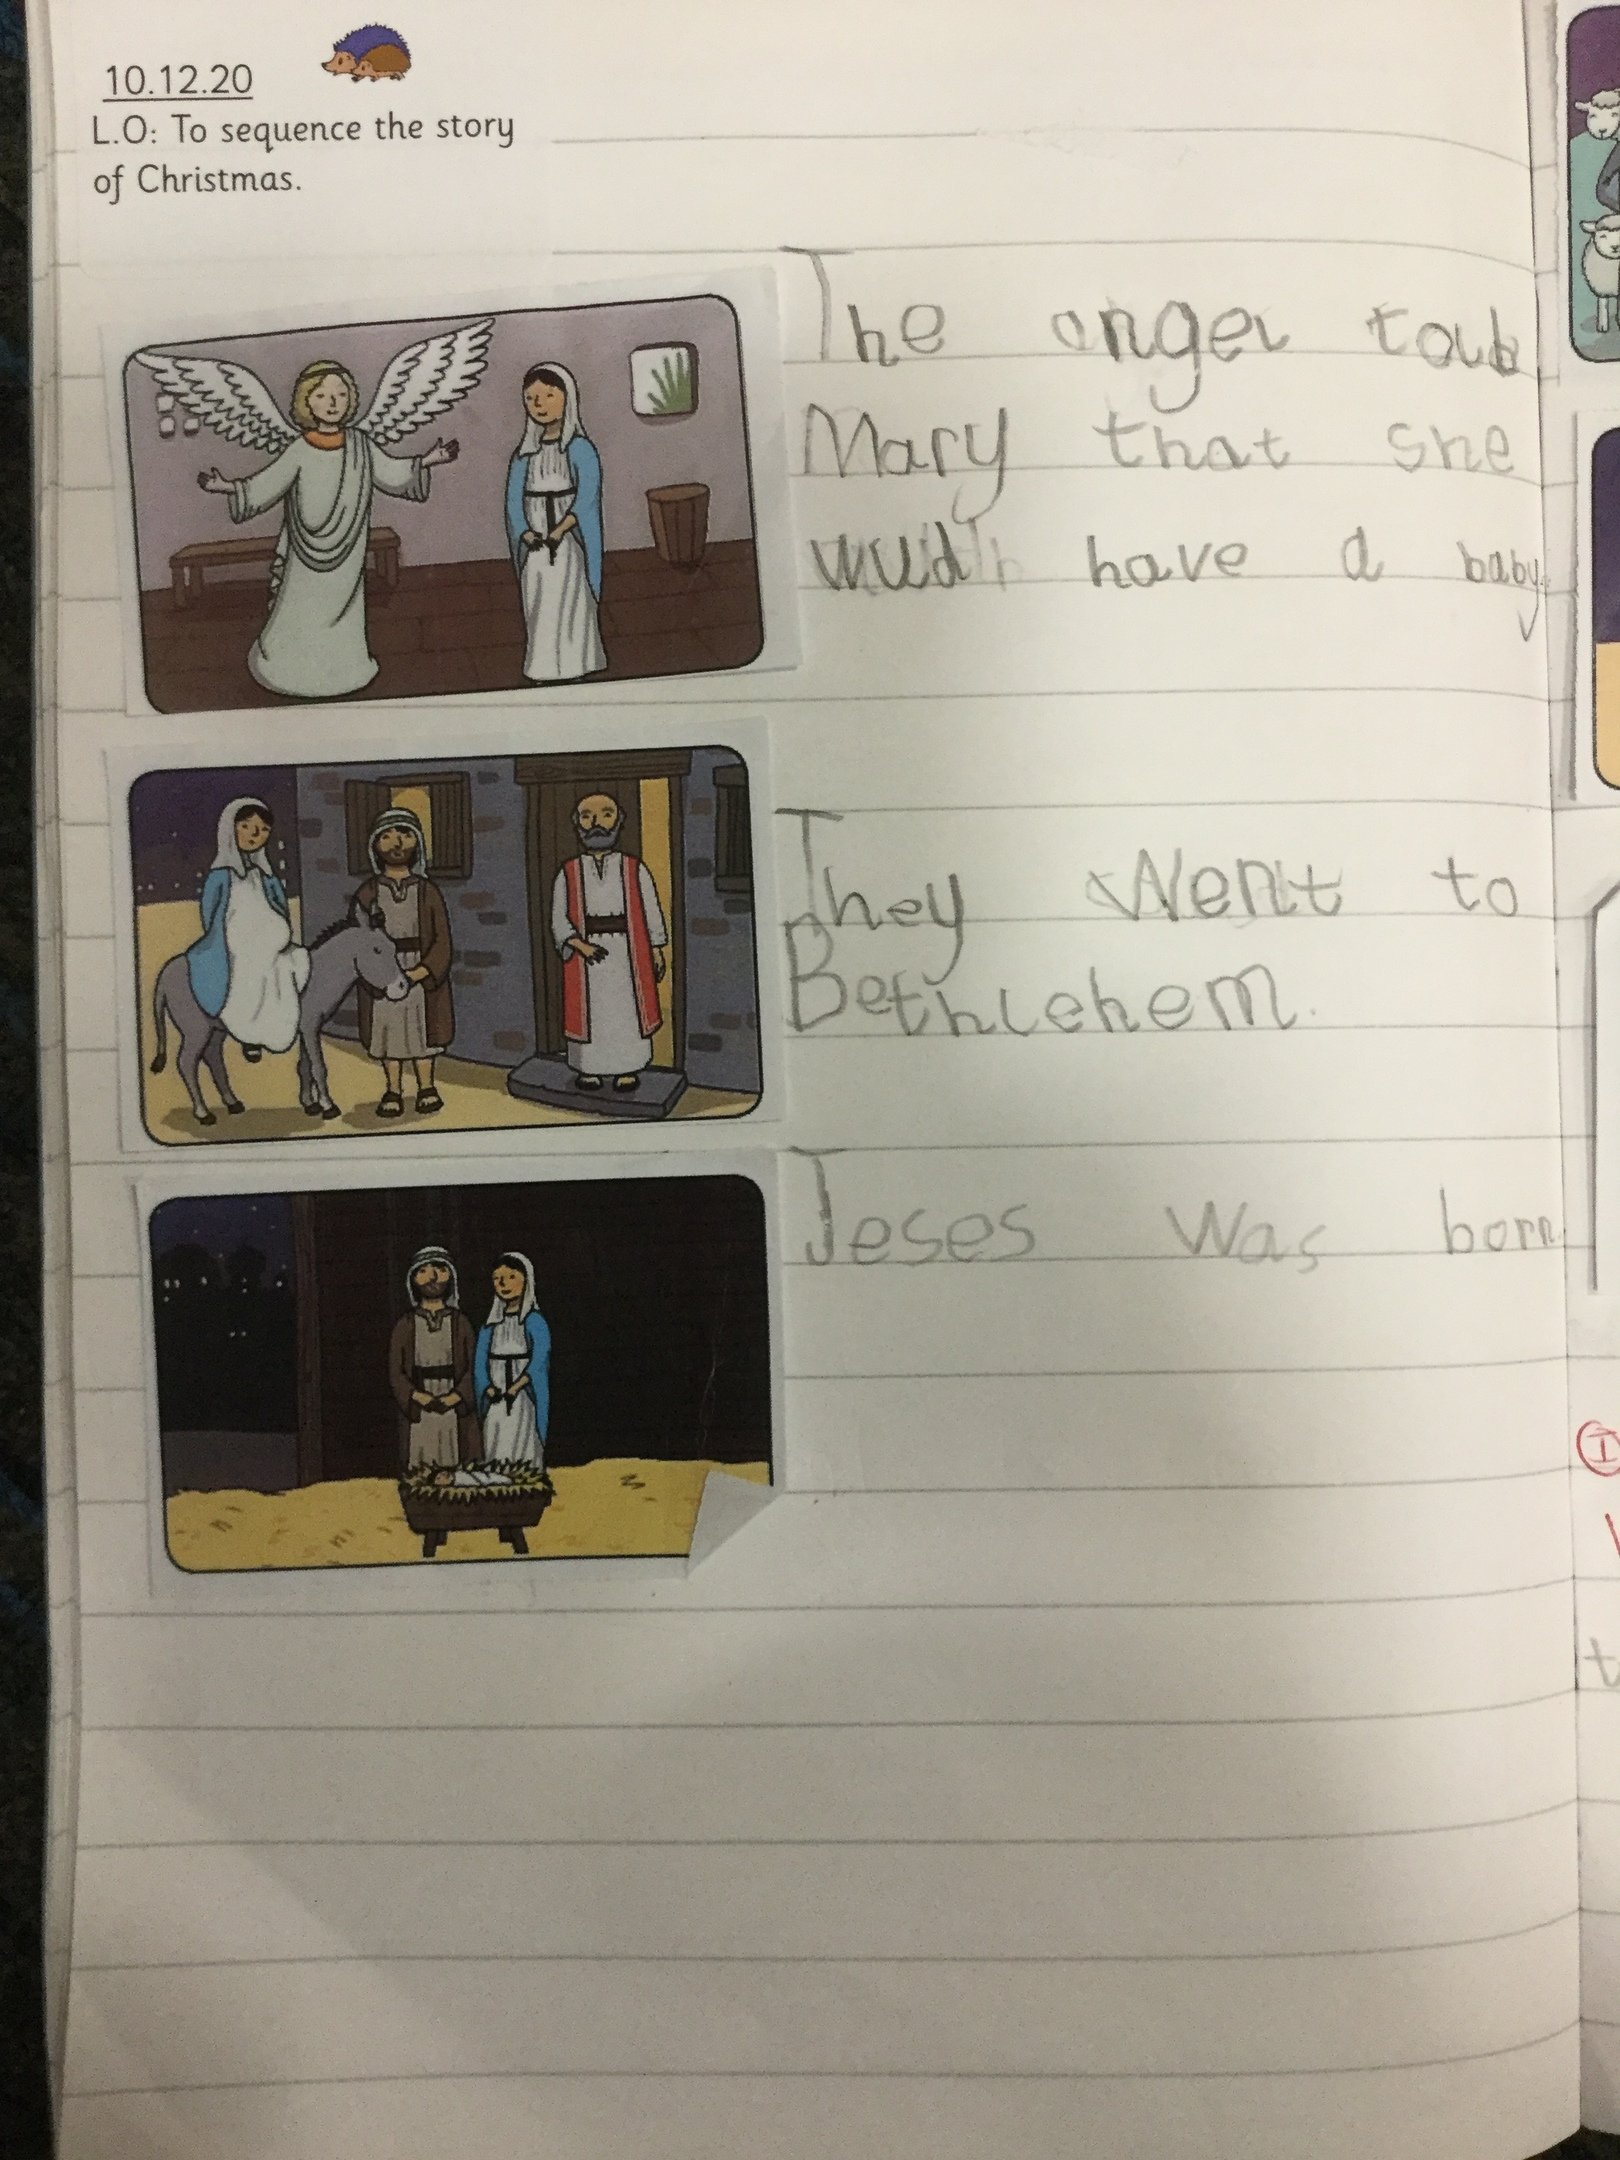 10.12.20
L.O: To sequence the story
of Christmas.
The angel
Mary that she
wud have a baby.
They Went to
Bethlehem.
Jeses Was born.
I
t